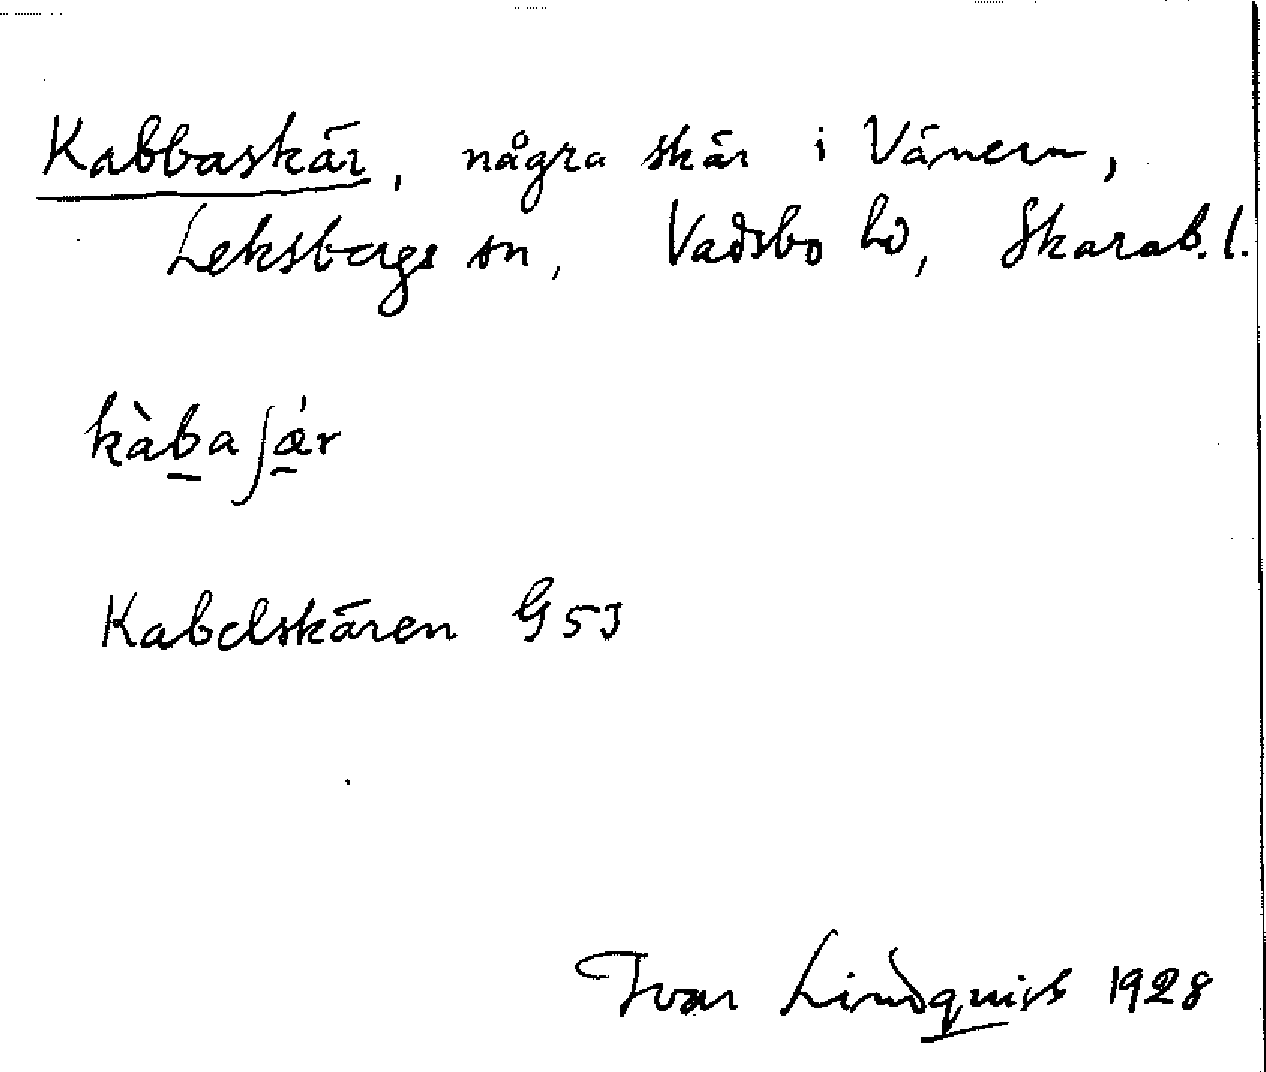 Kabbaskär, några skär i Vänern,
Leksbergs sn, Vadsbo hd, Skarab. l.
kàb̲aʃǽ̲r
Kabelskären G53
Ivar Lindquist 1928